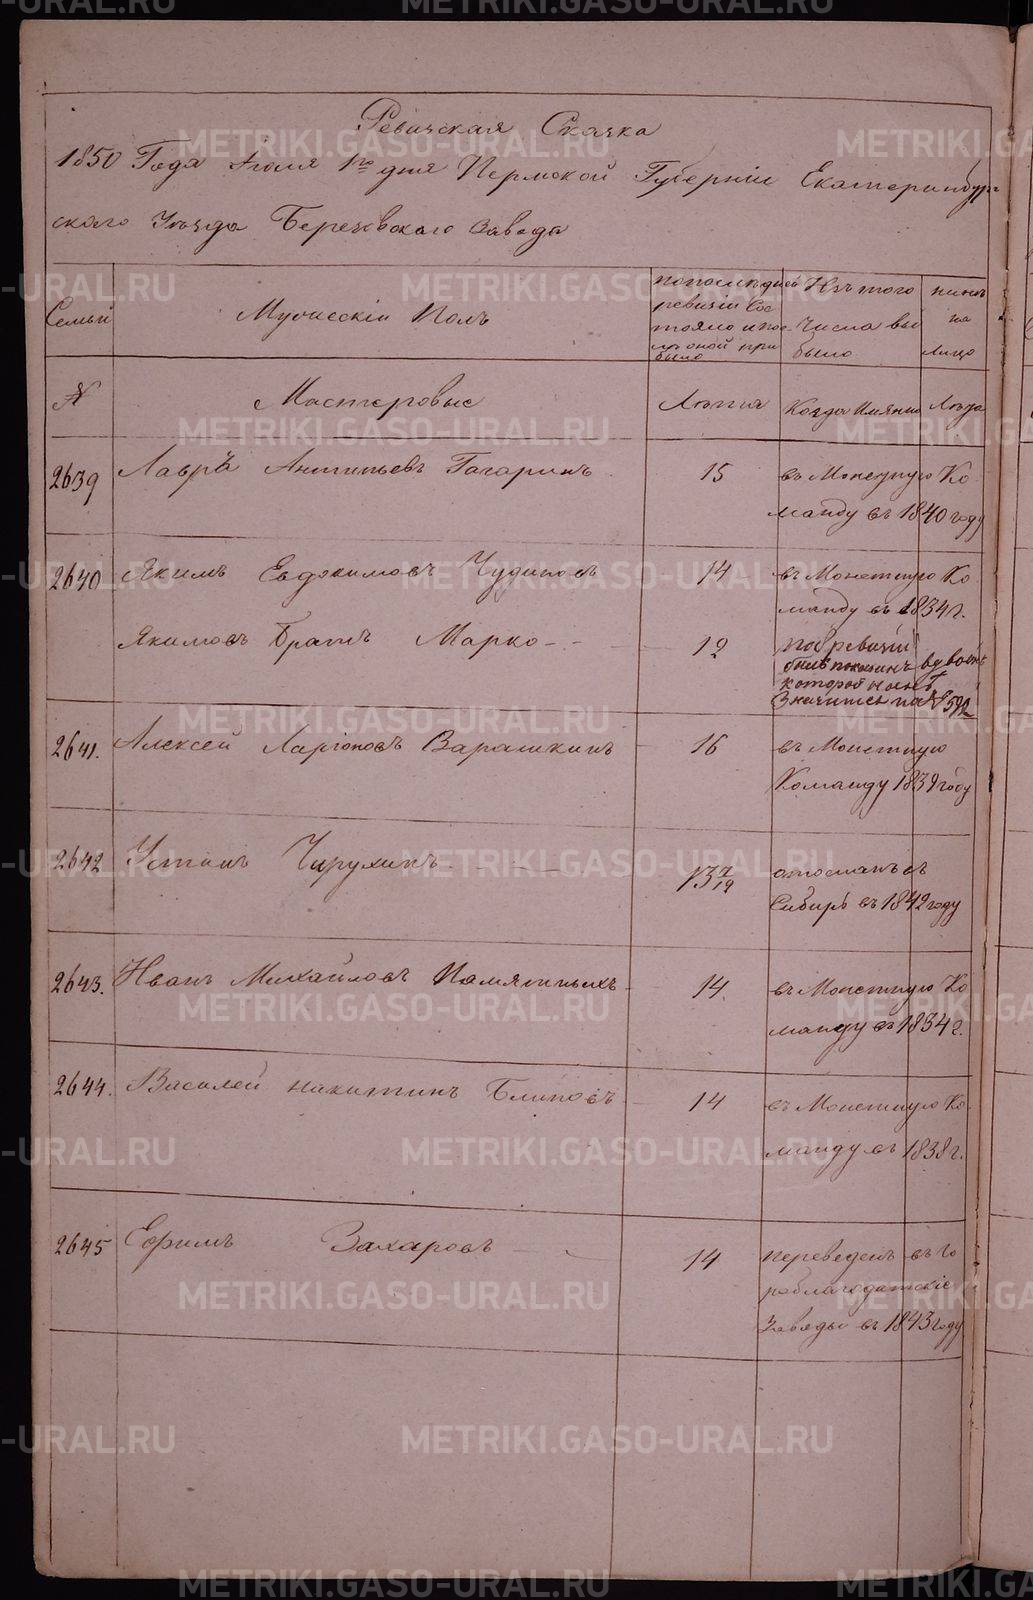 Ревизская Сказка
1850 Года Июля 1го дня Пермской Губерніи Екатеринбург
скаго Уезда Березовскаго завода
Семьи
Мужескій Полъ
По последней ревизіи сос тояло и пос ле оной при было
Изъ того числа вы было
ныне на лицо
№
Мастеровые
Лета
Когда имянно
Лета
2639
Лавръ Антипьевъ Гагаринъ
15
въ Монетную Ко
манду въ 1840 году
2640
Якимъ Евдокимовъ Чудиновъ
14
въ Монетную Ко
манду въ 1834 г.
Якимовъ Братъ Марко
12
по 8 ревизіи
былъ показанъ вдвойне
которой ныне
значится по № 590
2641.
Алексей Ларіоновъ Варашкинъ
16
въ Монетную
Команду 1839 году
2642
Устинъ Чирухинъ
13 7/19
отосланъ въ
Сибирь въ 1842 году
2643.
Иванъ Михайловъ Памятныхъ
14.
въ Монетную Ко
манду въ 1834 г.
2644.
Василей никитинъ Блиновъ
14
въ Монетную Ко
манду въ 1838 г.
2645
Ефимъ Захаровъ
14
переведенъ въ Го
роблагодатскіе
Заводы въ 1843 году
METRIKI.GASO-URAL.RU